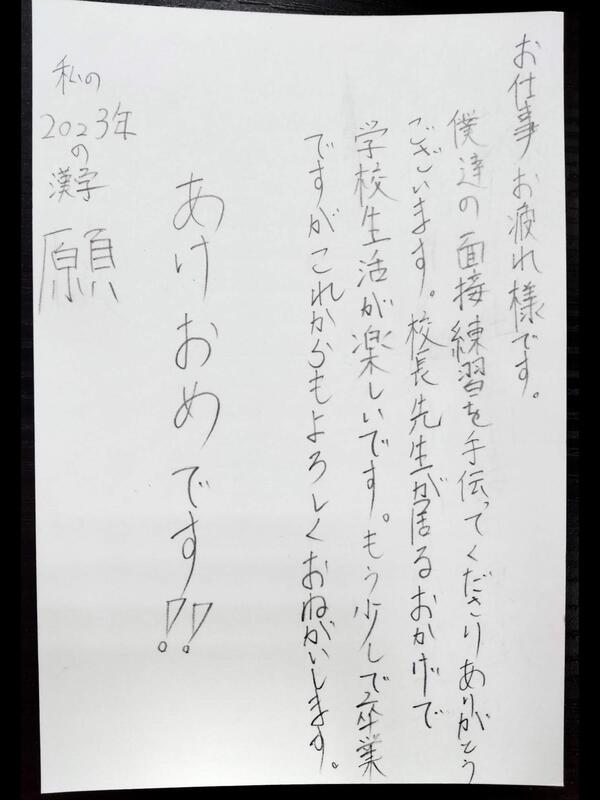 お仕事お疲れ様です。
僕達の面接練習を手伝ってくださりありがとう
ございます。校長先生が居るおかげで
学校生活が楽しいです。もう少しで卒業
ですがこれからもよろしくおねがいします。
あけおめです!!
私の
2023年
の
漢字
願